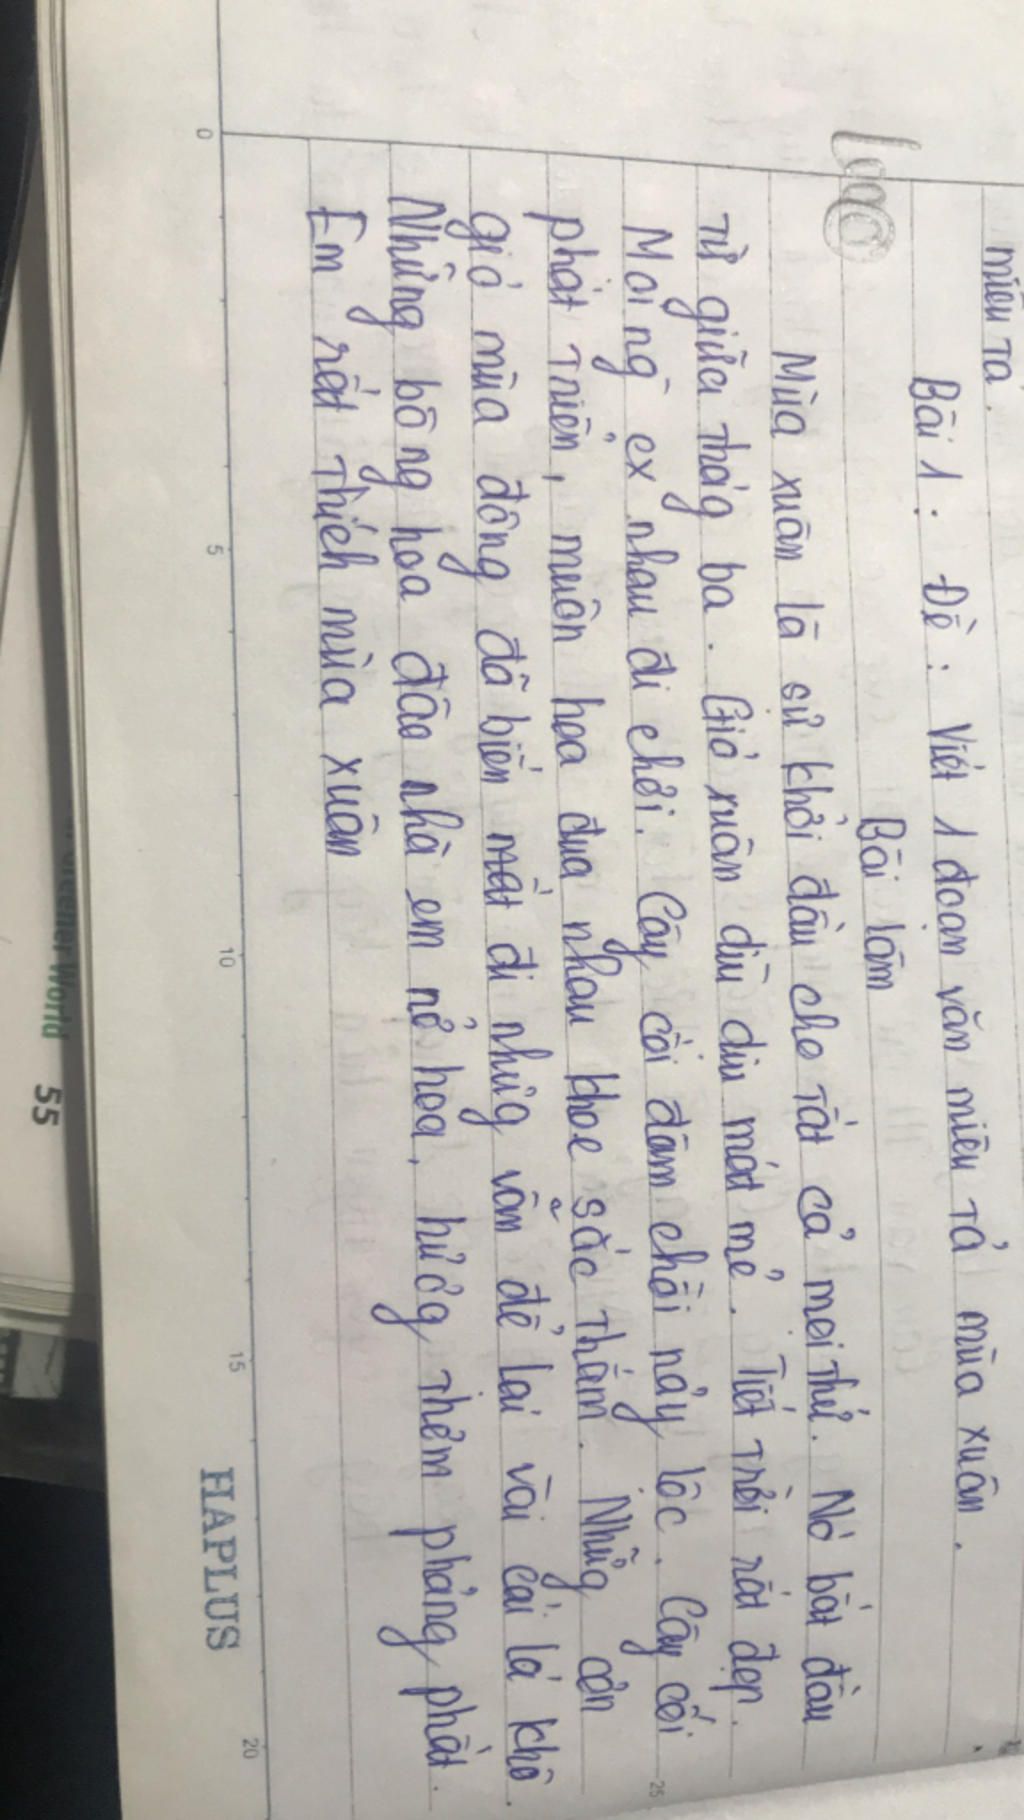 miêu tả.
Bài 1 : Đề : Viết 1 đoạn văn miêu tả mùa xuân.
Bài làm
Mùa xuân là sự khởi đầu cho tất cả mọi thứ. Nó bắt đầu
từ giữa thág ba. Gió xuân dìu dịu mát mẻ. Tiết trời rất đẹp.
Mọi ng` ex nhau đi chơi. Cây cối đâm chồi nảy lộc. Cây cối
phát triển, muôn hoa đua nhau khoe sắc thắm. Nhữg cơn
gió mùa đông đã biến mất đi nhưg vẫn để lại vài cái lá khô.
Những bông hoa đào nhà em nở hoa, hươg thơm phảng phất.
Em rất thích mùa xuân
0
5
10
15
20
25
HAPLUS
World 55